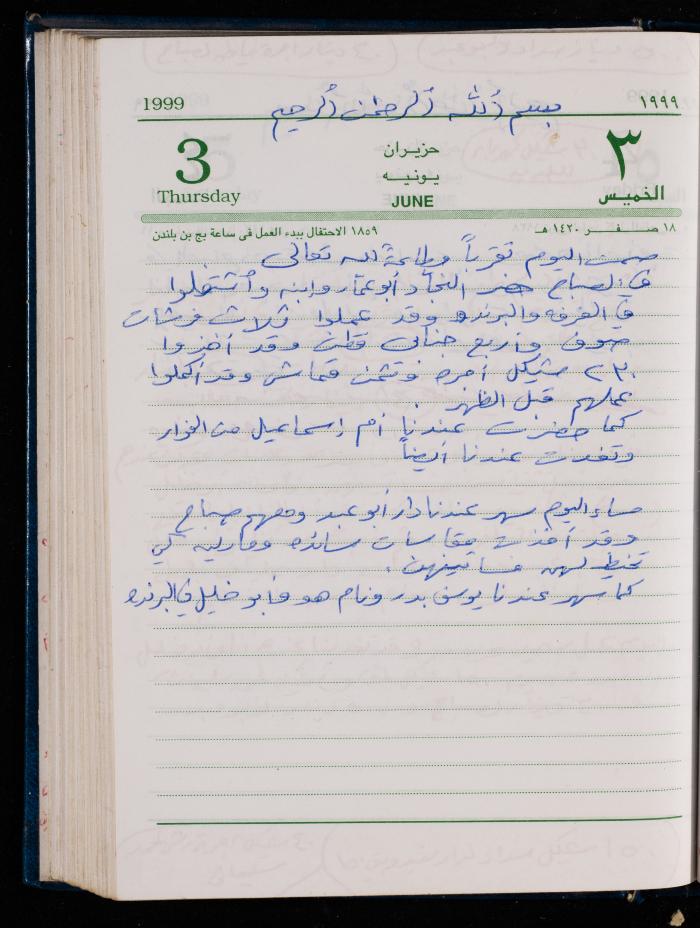 1999 بسم الله الرحمن الرحيم ١٩٩٩
3 حزيران ٣
يونيه
Thursday JUNE الخميس
١٨ صفر ١٤٢٠ هـ ١٨٥٩ الاحتفال ببدء العمل فى ساعة بج بن بلندن
صمت اليوم تقرباً وطاعة لله تعالى
في الصباح حضر النجاد أبو عمار وابنه واشتغلوا
في الغرفه والبرنده وقد عملوا ثلاث فرشات
صوف واربع جنابي قطن وقد أخذوا
٢٣٠ شيكل أجره وثمن قماش وقد أكملوا
عملهم قبل الظهر .
كما حضرت عندنا أم إسماعيل من الفوار
وتغدت عندنا أيضاً
مساء اليوم سهر عندنا دار أبو عبد ومعهم صباح
وقد أخذت مقاسات سائده وماريه كي
تخيط لهن فساتينهن .
كما سهر عندنا يوسف بدر ونام هو وأبو خليل في البرنده